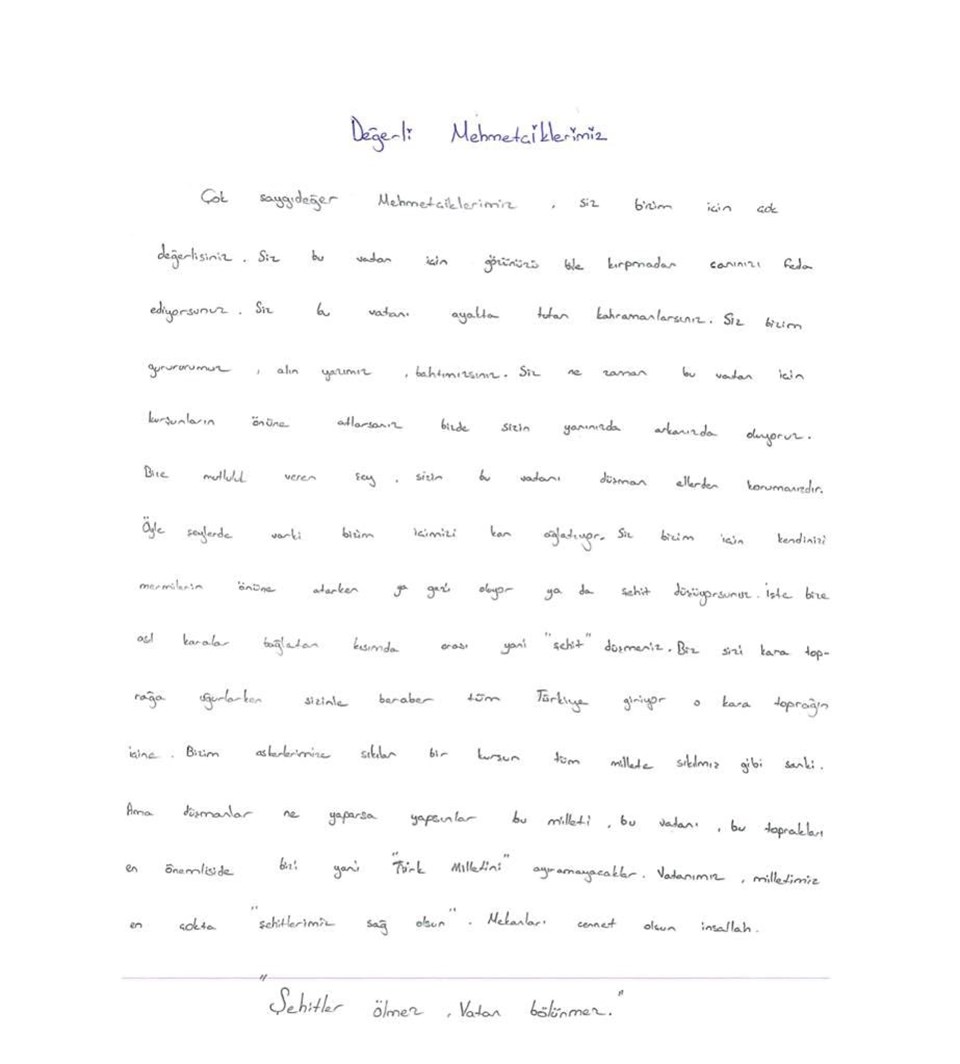 Değerli Mehmetciklerimiz
Çok saygıdeğer Mehmetciklerimiz , siz bizim icin cok
değerlisiniz . Siz bu vatan icin gözünüzü bile kırpmadan canınızı feda
ediyorsunuz . Siz bu vatanı ayakta tutan kahramanlarsınız. Siz bizim
gururumuz , alın yazımız , bahtımızsınız. Siz ne zaman bu vatan icin
kurşunların önüne atlarsanız bizde sizin yanınızda arkanızda oluyoruz.
Bize mutluluk veren sey , sizin bu vatanı düsman ellerden korumanızdır.
Öyle seylerde varki bizim icimizi kan ağlatıyor. Siz bizim icin kendinizi
mermilerin önüne atarken ya gazi oluyor ya da sehit düsüyorsunuz. İste bize
asıl karalar bağlatan kısımda orası yani "sehit" düsmeniz. Biz sizi kara top-
rağa uğurlarken sizinle beraber tüm Türkiye giriyor o kara toprağın
icine . Bizim askerlerimize sıkılan bir kursun tüm millete sıkılmız gibi sanki.
Ama düsmanlar ne yaparsa yapsınlar bu milleti , bu vatanı , bu toprakları
en önemliside bizi yani "Türk Milletini" ayıramayacaklar. Vatanımız , milletimiz
en cokta "sehitlerimiz sağ olsun" . Mekanları cennet olsun insallah.
"Şehitler ölmez , Vatan bölünmez."